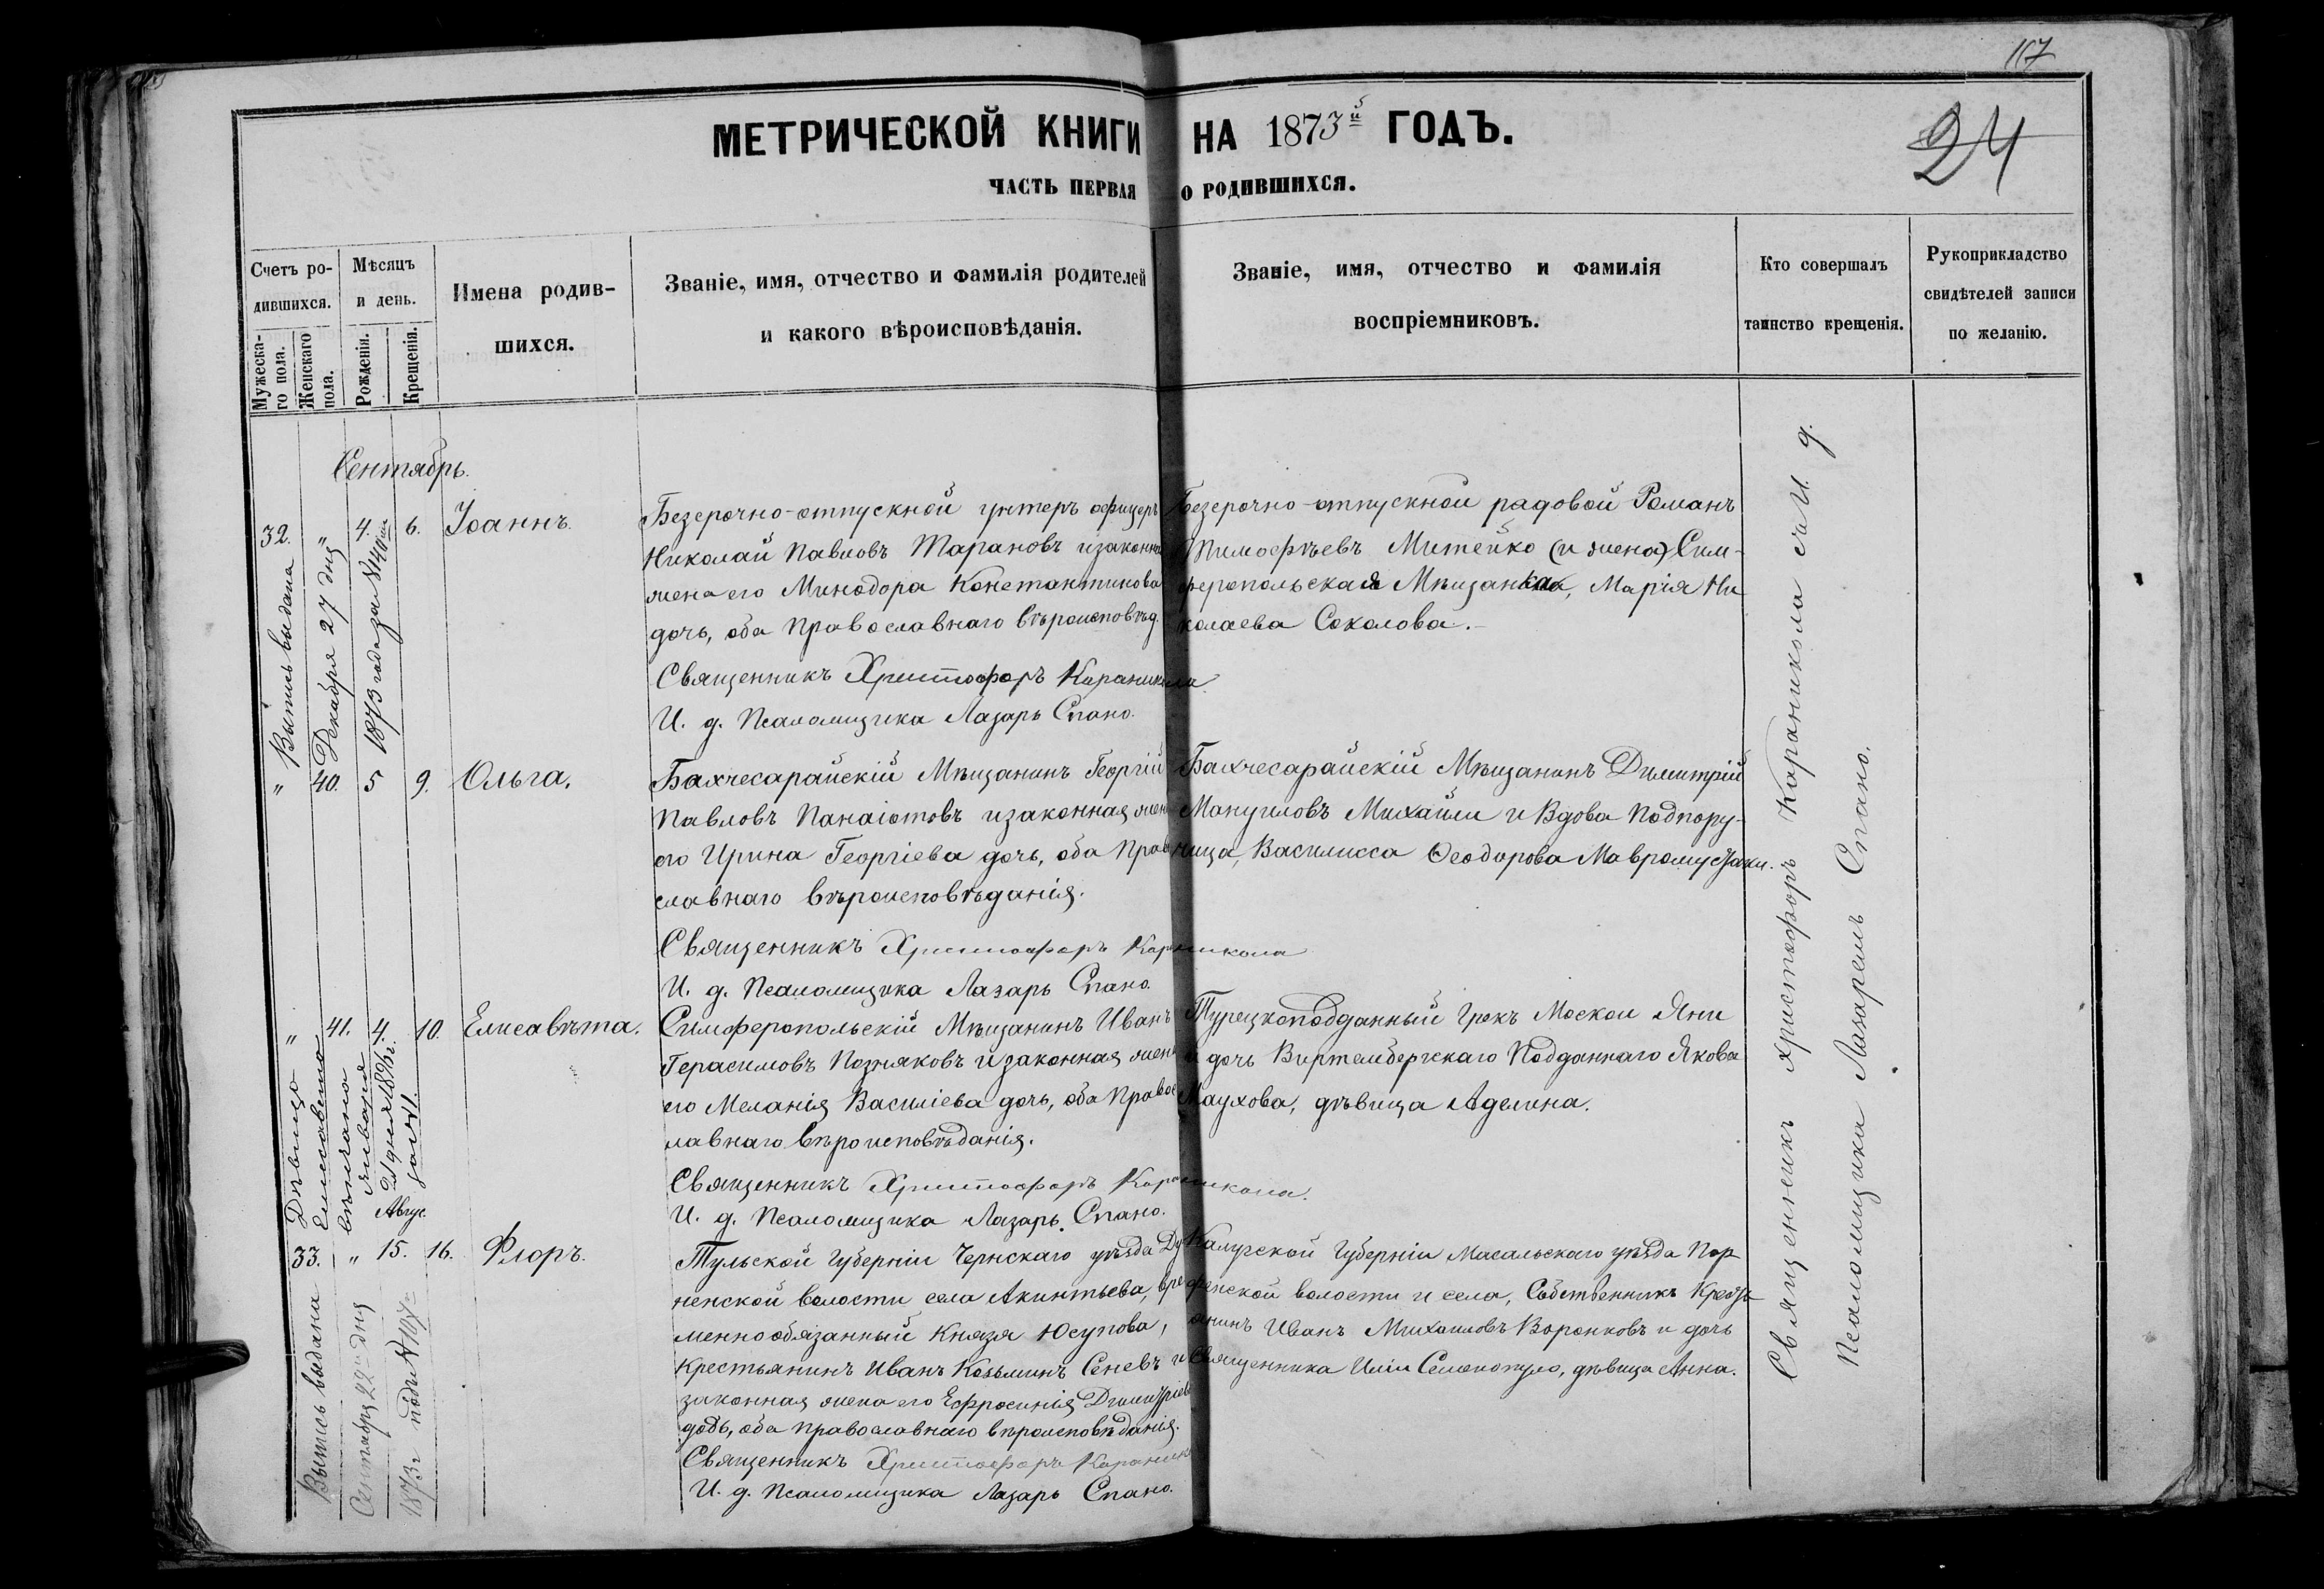 117
24
МЕТРИЧЕСКОЙ КНИГИ НА 1873й ГОДЪ.
ЧАСТЬ ПЕРВАЯ О РОДИВШИХСЯ.
Счетъ ро-
дившихся.
Мужеска-
го пола.
Женскаго
пола.
Мѣсяцъ
и день.
Рожденія.
Крещенія.
Имена родив-
шихся.
Званіе, имя, отчество и фамилія родителей
и какого вѣроисповѣданія.
Званіе, имя, отчество и фамилія
воспріемниковъ.
Кто совершалъ
таинство крещенія.
Рукоприкладство
свидѣтелей записи
по желанію.
Сентябрь.
32. " 4. 6. Іоаннъ.
Безсрочно-отпускной унтеръ офицеръ
Николай Павловъ Тарановъ и законная
жена его Минодора Константинова
дочь, оба Православнаго вѣроисповѣд.
Священникъ Христофоръ Караникола
И. д. Псаломщика Лазарь Спано.
Безсрочно-отпускной рядовой Романъ
Тимофѣевъ Митейко (и жена) Сим-
феропольская Мѣщанка, Марія Ни
колаева Соколова.-
Выпись выдана
Декабря 27 дня
1873 года за № 40
" 40. 5 9. Ольга.
Бахчесарайскій Мѣщанинъ Георгій
Павловъ Панаіотовъ и законная жена
его Ирина Георгіева дочь, оба Право
славнаго вѣроисповѣданія.
Священникъ Христофоръ Караникола
И. д. Псаломщика Лазарь Спано.
Бахчесарайскій Мѣщанинъ Димитрій
Мануиловъ Михайли и Вдова Подпору-
чица, Василисса Ѳеодорова Мавромустаки.
" 41. 4. 10. Елисавѣта.
Симферопольскій Мѣщанинъ Иванъ
Герасимовъ Позняковъ и законная жена
его Меланія Василіева дочь, оба Правос
лавнаго вѣроисповѣданія.
Священникъ Христофоръ Караникола.
И. д. Псаломщика Лазарь Спано.
Турецкоподданный Грекъ Москои Яни
и дочь Виртембергскаго Подданнаго Якова
Маухова, дѣвица Аделина.
Дѣвица
Елисавета
вѣнчана
Января
21 дня 1896 г.
Авгус.
33. " 15. 16. Флоръ.
Тульской Губерніи Чернскаго уѣзда
ненской волости села Акинтьева, вре
меннообязанный Князя Юсупова,
Крестьянинъ Иванъ Козьминъ Сеневъ и
законная жена его Ефросинія Димитріева
дочь, оба православнаго вѣроисповѣданія.
Священникъ Христофоръ Караникола
И. д. Псаломщика Лазарь Спано.
Калужской Губерніи Масальскаго уѣзда Пор
фенской волости и села, Собственникъ Кресть
янинъ Иванъ Михаиловъ Воронковъ и дочь
Священника Иліи Селенопуло, дѣвица Анна.
Выпись выдана
Сентября 22го дня
1873 г. подъ №
Священникъ Христофоръ Караникола съ И. д.
Псаломщика Лазаремъ Спано.